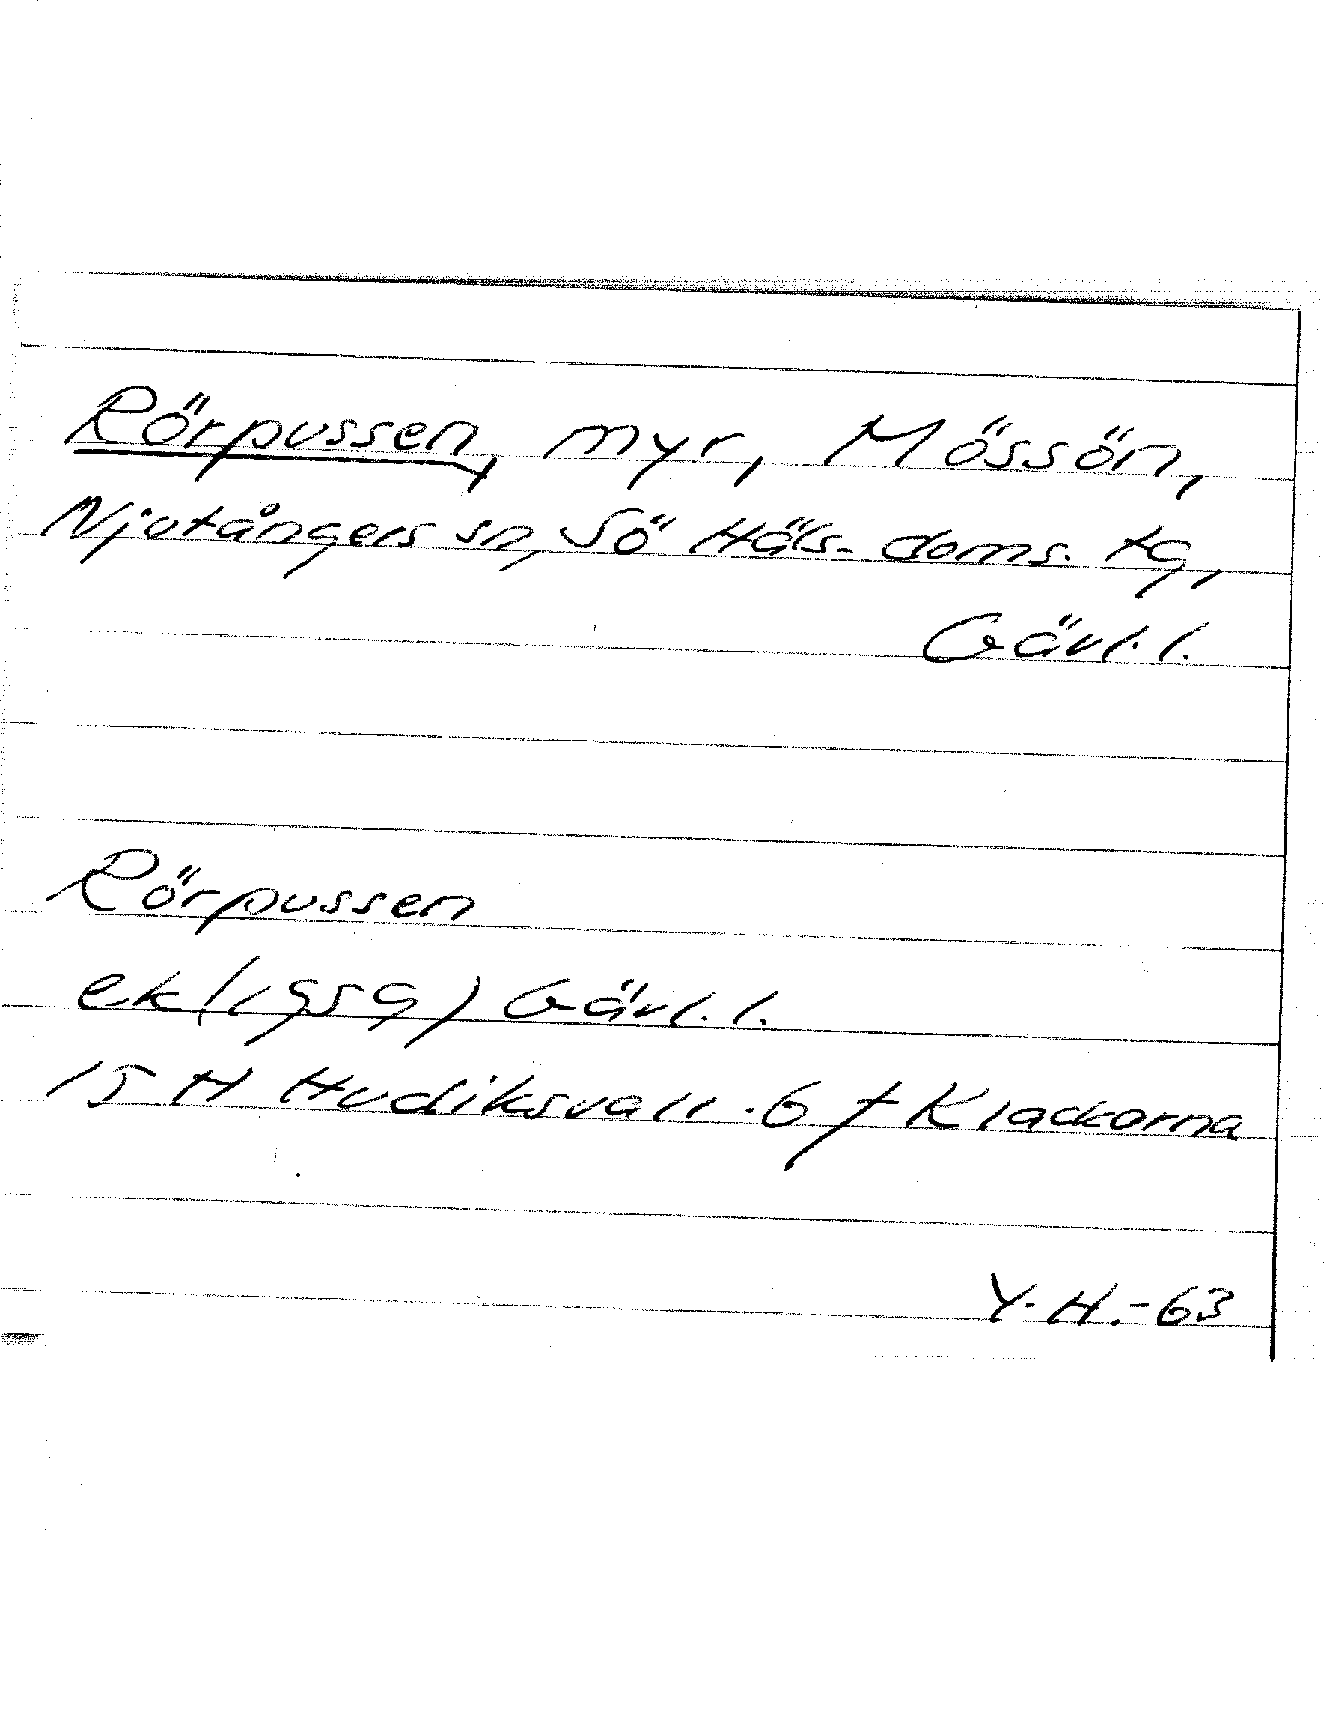 Rörpussen, myr, Mössön,
Njutångers sn, Sö Häls. doms. tg,
Gävl. l.
Rörpussen
ek (1959) Gävl. l.
15 H Hudiksvall .6 f Klackorna
Y. H. -63